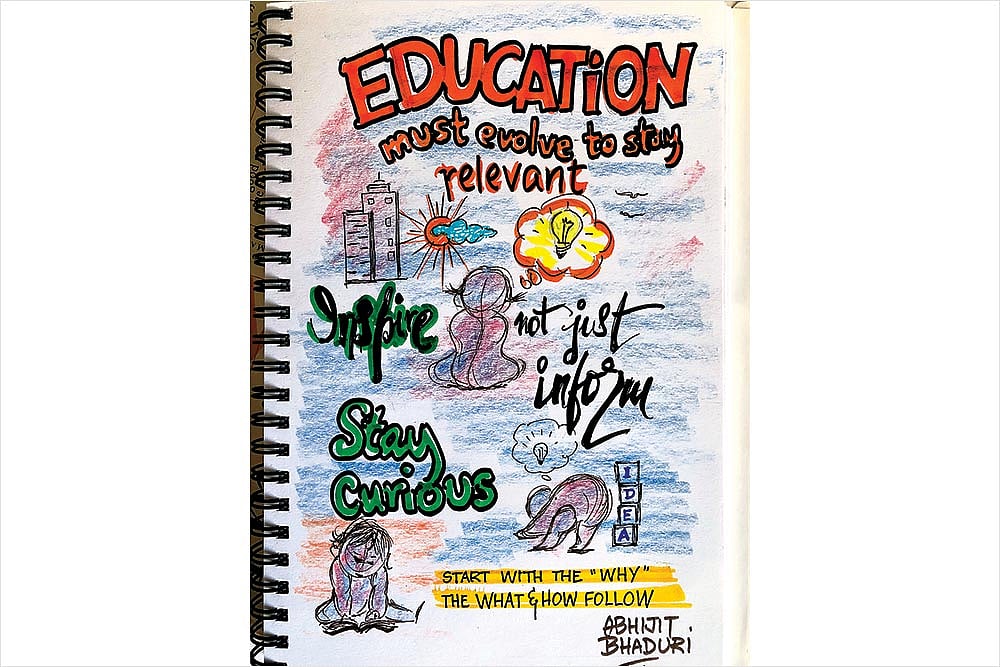 EDUCATiON
must evolve to stay
relevant
Inspire
not just
inform
Stay
Curious
I
D
E
A
START WITH THE "WHY"
THE WHAT & HOW FOLLOW
ABHIJIT
BHADURI